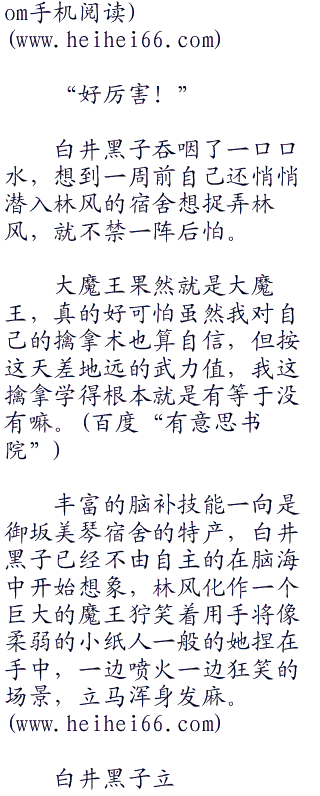 om手机阅读)
(www.heihei66.com)
“好厉害！”
白井黑子吞咽了一口口
水，想到一周前自己还悄悄
潜入林风的宿舍想捉弄林
风，就不禁一阵后怕。
大魔王果然就是大魔
王，真的好可怕虽然我对自
己的擒拿术也算自信，但按
这天差地远的武力值，我这
擒拿学得根本就是有等于没
有嘛。(百度“有意思书
院”)
丰富的脑补技能一向是
御坂美琴宿舍的特产，白井
黑子已经不由自主的在脑海
中开始想象，林风化作一个
巨大的魔王狞笑着用手将像
柔弱的小纸人一般的她捏在
手中，一边喷火一边狂笑的
场景，立马浑身发麻。
(www.heihei66.com)
白井黑子立